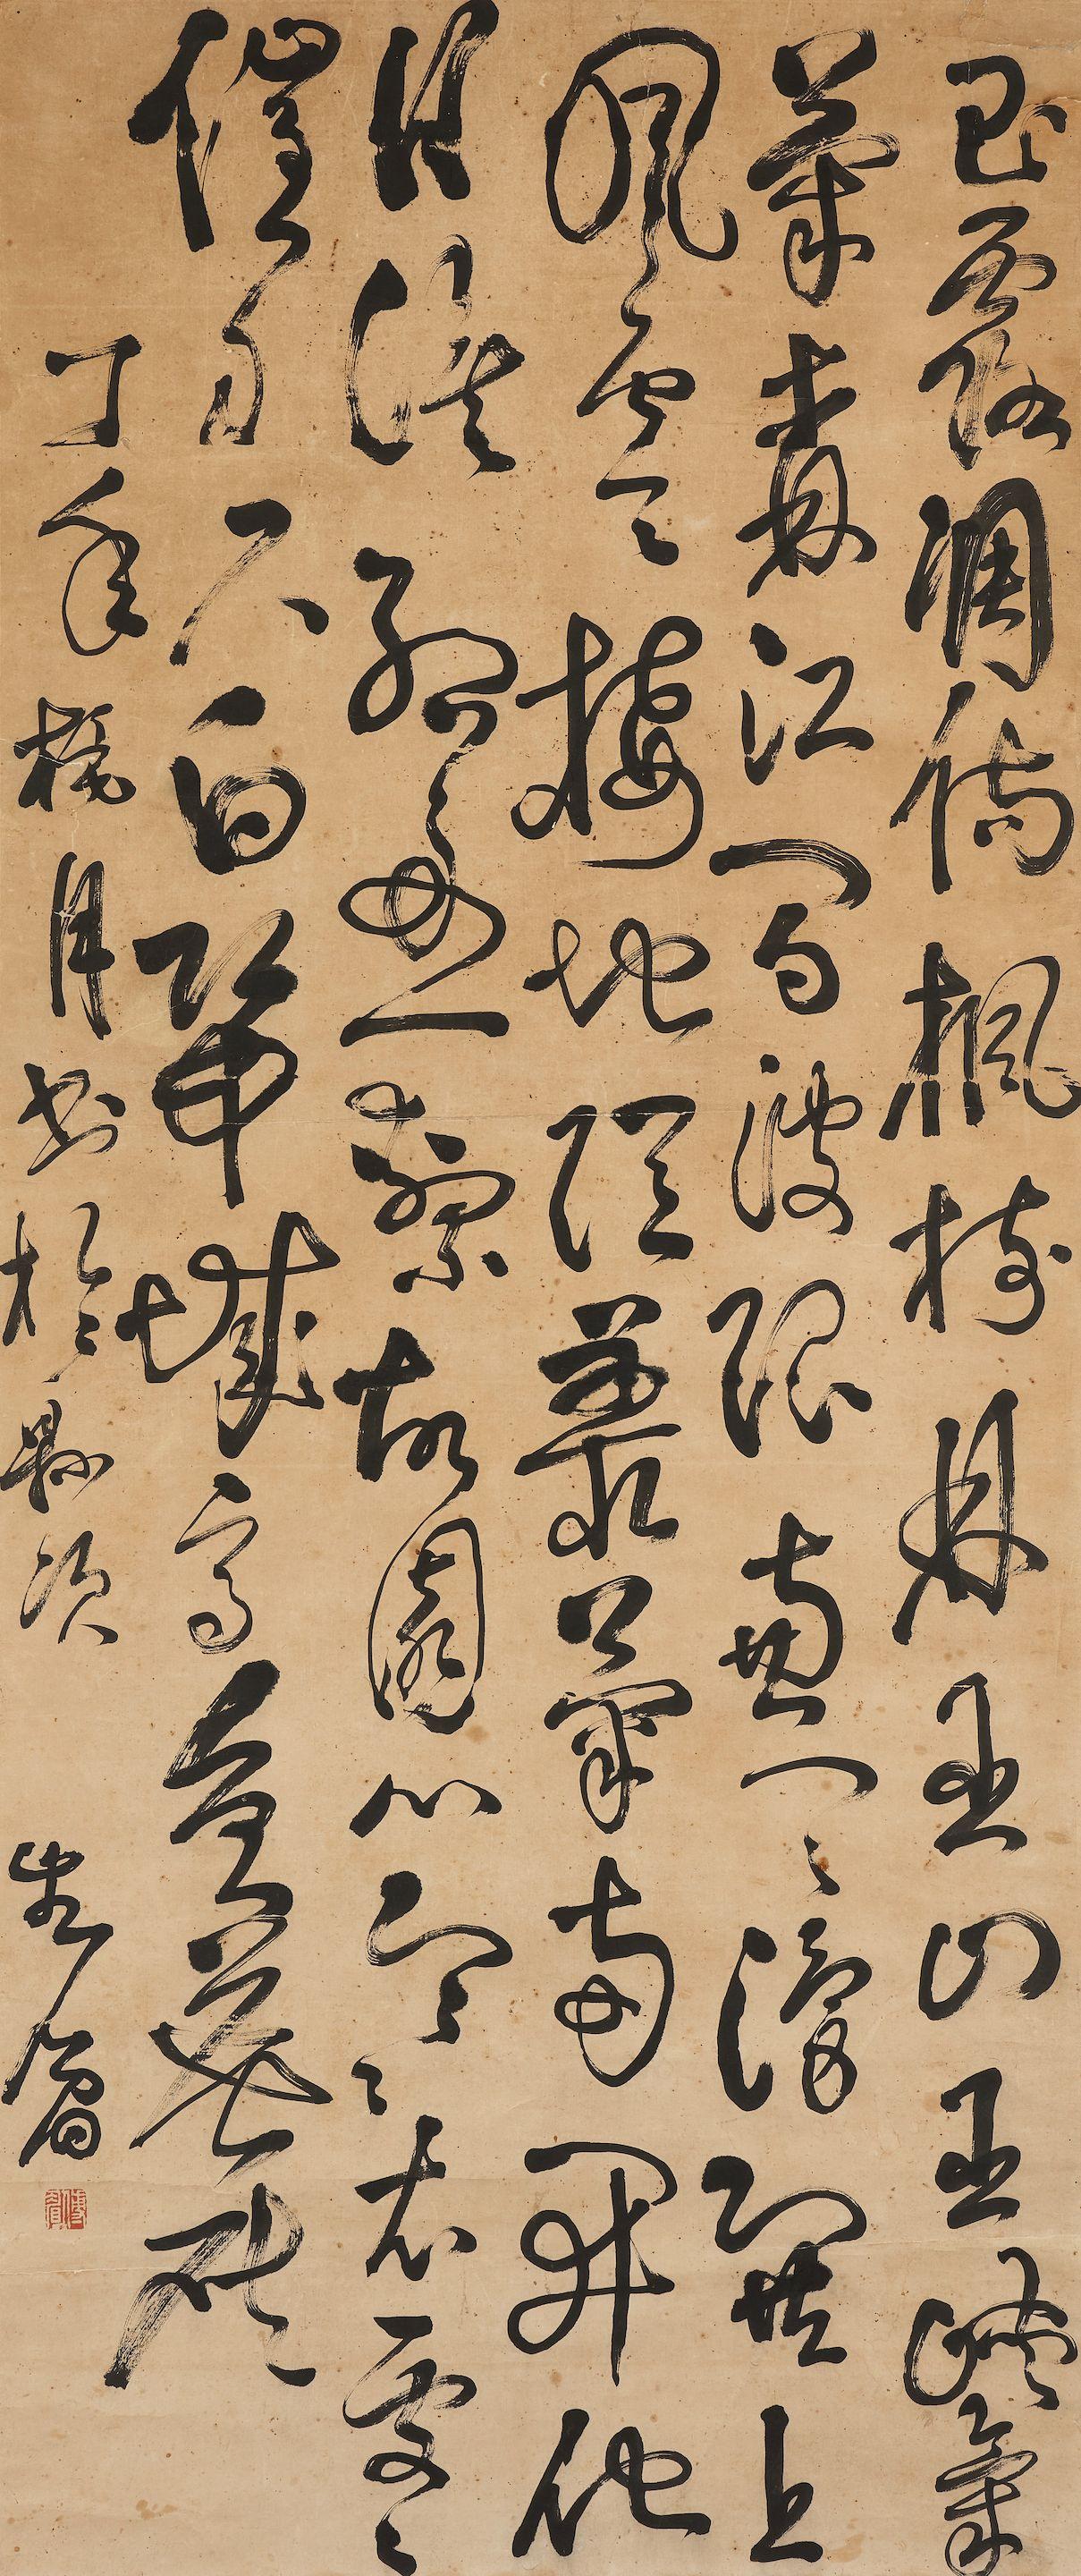 玉露凋傷楓樹林巫山巫峽氣
蕭森江間波浪兼天湧塞上
風雲接地陰叢菊兩開他
日淚孤舟一繫故園心寒衣處〻
催刀尺白帝城高急暮砧
丁年桃月書於縣次 眉
傅眉